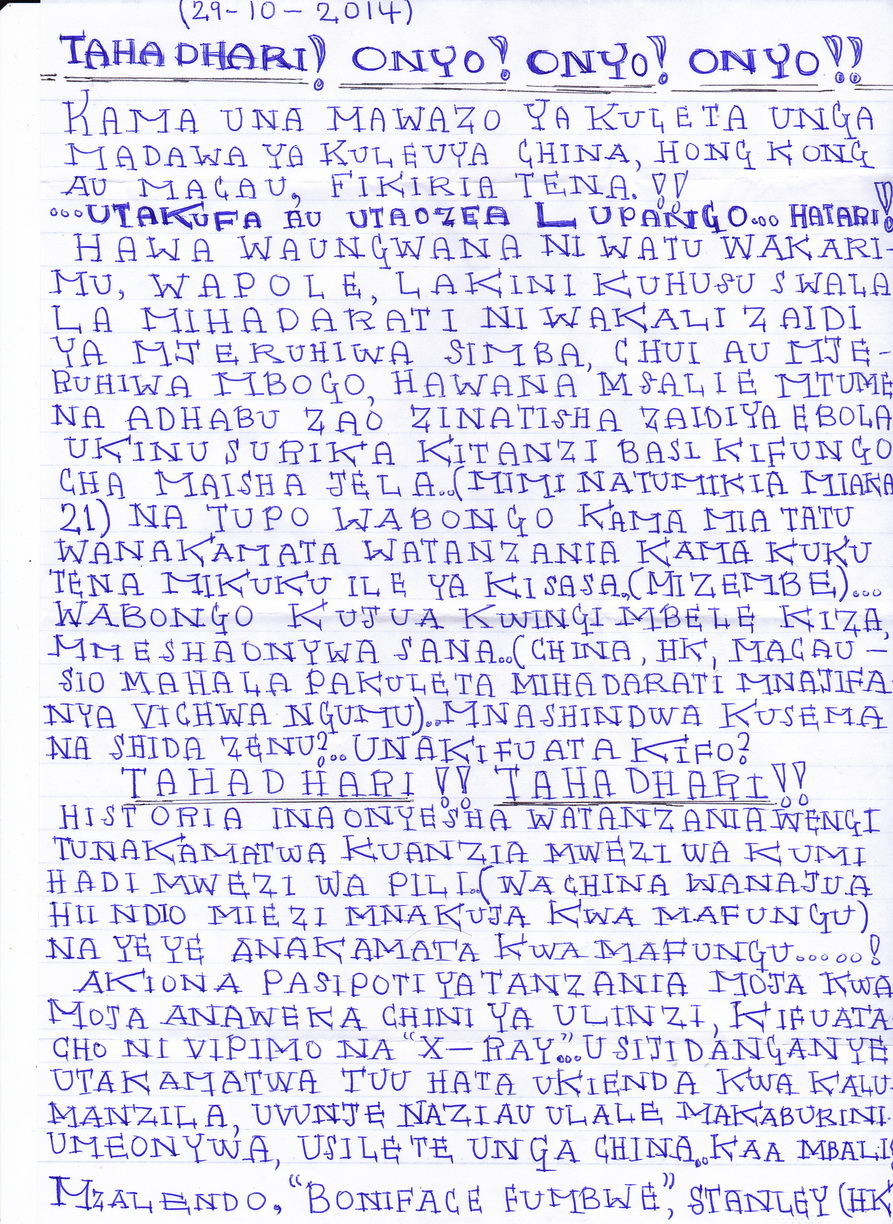 (29-10-2014)
TAHADHARI! ONYO! ONYO! ONYO!!
KAMA UNA MAWAZO YA KULETA UNGA
MADAWA YA KULEVYA CHINA, HONG KONG
AU MACAU, FIKIRIA TENA.!!
...UTAKUFA AU UTAOZEA LUPANGO... HATARI!
HAWA WAUNGWANA NI WATU WAKARI-
MU, WAPOLE, LAKINI KUHUSU SWALA
LA MIHADARATI NI WAKALI ZAIDI
YA MJERUHIWA SIMBA, CHUI AU MJE-
RUHIWA MBOGO, HAWANA MSALIE MTUME
NA ADHABU ZAO ZINATISHA ZAIDI YA EBOLA
UKINUSURIKA KITANZI BASI KIFUNGO
CHA MAISHA JELA..(MIMI NATUMIKIA MIAKA
21) NA TUPO WABONGO KAMA MIA TATU
WANAKAMATA WATANZANIA KAMA KUKU
TENA MIKUKU ILE YA KISASA.(MIZEMBE)...
WABONGO KUJUA KWINGI MBELE KIZA,
MMESHAONYWA SANA..(CHINA, HK, MACAU-
SIO MAHALA PAKULETA MIHADARATI MNAJIFA-
NYA VICHWA NGUMU)..MNASHINDWA KUSEMA
NA SHIDA ZENU?..UNAKIFUATA KIFO?
TAHADHARI!! TAHADHARI!!
HISTORIA INAONYESHA WATANZANIA WENGI
TUNAKAMATWA KUANZIA MWEZI WA KUMI
HADI MWEZI WA PILI..(WACHINA WANAJUA
HII NDIO MIEZI MNAKUJA KWA MAFUNGU)
NA YEYE ANAKAMATA KWA MAFUNGU.....!
AKIONA PASIPOTI YA TANZANIA MOJA KWA
MOJA ANAWEKA CHINI YA ULINZI, KIFUATA-
CHO NI VIPIMO NA "X-RAY"...USIJIDANGANYE
UTAKAMATWA TUU HATA UKIENDA KWA KALU-
MANZILA, UVUNJE NAZI AU ULALE MAKABURINI
UMEONYWA, USILETE UNGA CHINA..KAA MBALI!
MZALENDO, "BONIFACE FUMBWE", STANLEY (HK